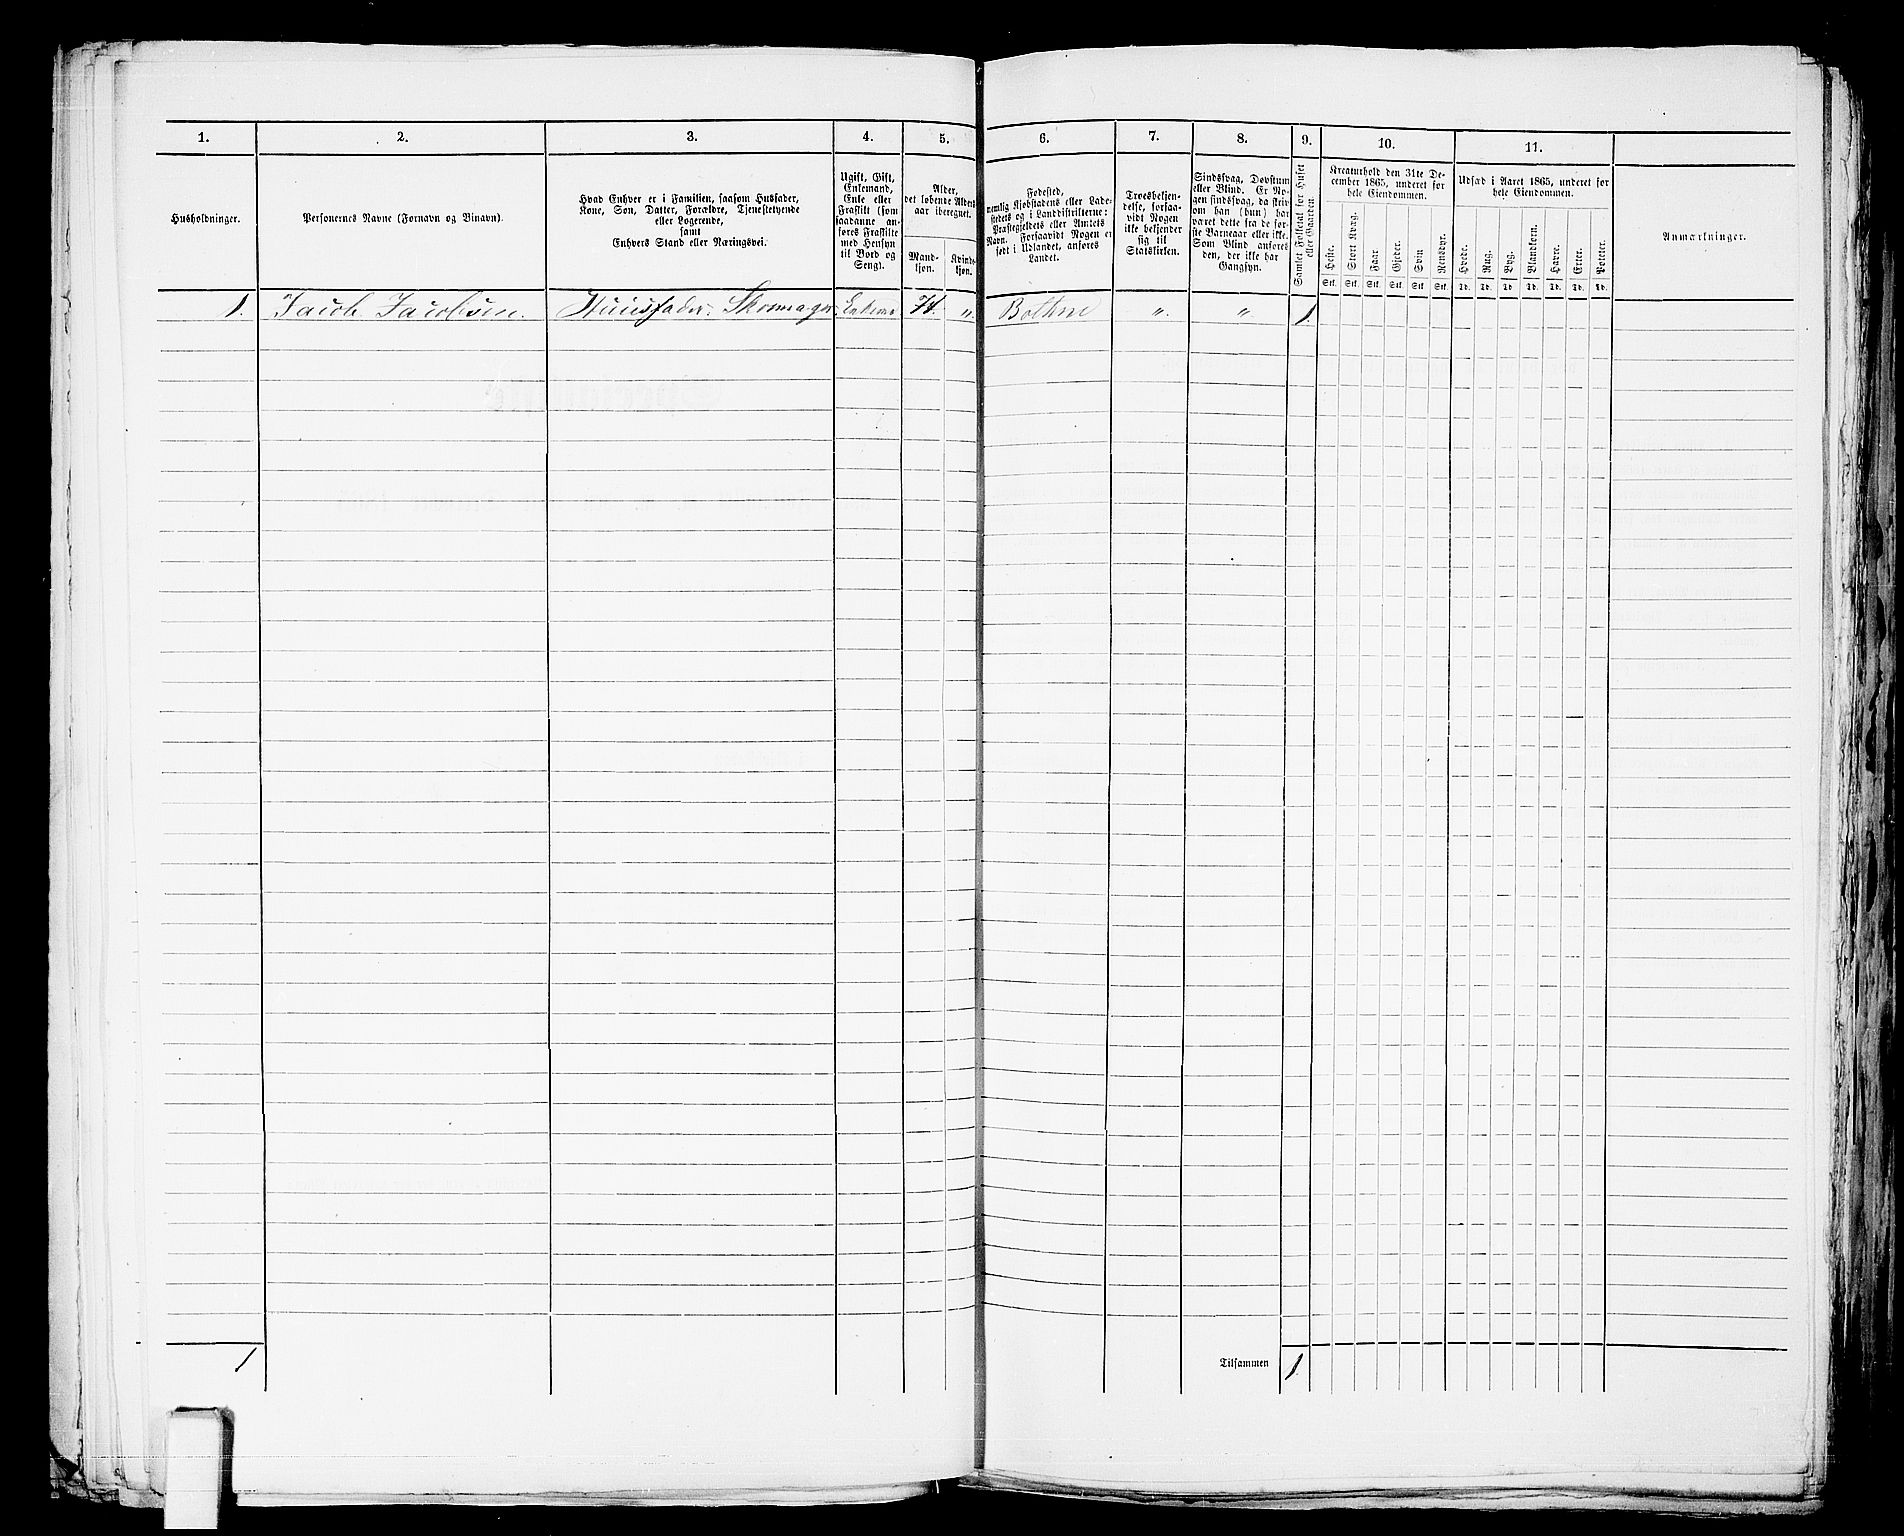 1. 2. 3. 4. 5. 6. 7. 8. 9. 10. 11.
Husholdninger.
Personernes Navne (Fornavn og Binavn).
Hvad Enhver er i Familien, saasom Husfader,
Kone, Søn, Datter, Forældre, Tjenestetyende
eller Logerende,
samt
Enhvers Stand eller Næringsvei.
Ugift, Gift,
Enkemand,
Enke eller
Fraskilt (som
saadanne an-
føres Fraskilte
med Hensyn
til Bord og
Seng).
Alder,
det løbende Alders-
aar iberegnet.
Mand-
kjøn.
Kvind-
kjøn.
Fødested,
nemlig Kjøbstadens eller Lade-
stedets og i Landdistrikterne:
Præstegjeldets eller Amtets
Navn. Forsaavidt Nogen er
født i Udlandet, anføres
Landet.
Troesbekjen-
delse, forsaa-
vidt Nogen
ikke bekjender
sig til
Statskirken.
Sindssvag, Døvstum
eller Blind. Er No-
gen sindssvag, da skriv
om han (hun) har
været dette fra de før-
ste Barneaar eller ikke.
Som Blind anføres
den, der ikke har
Gangsyn.
Samlet Folketal for Huset
eller Gaarden.
Kreaturhold den 31te De-
cember 1865, underet for
hele Eiendommen.
Heste.
Stort Kvæg.
Faar
Gjeder.
Svin
Rensdyr.
Stk. Stk. Stk. Stk. Stk. Stk.
Udsæd i Aaret 1865, underet for
hele Eiendommen.
Hvede.
Rug.
Byg.
Blandkorn.
Havre.
Erter.
Poteter.
Td. Td. Td. Td. Td. Td. Td.
Anmærkninger.
1. Jacob Jacobsen. Huusfader. Skomager. Enkem. 74. „ Bothne „ „ 1.
1 Tilsammen 1